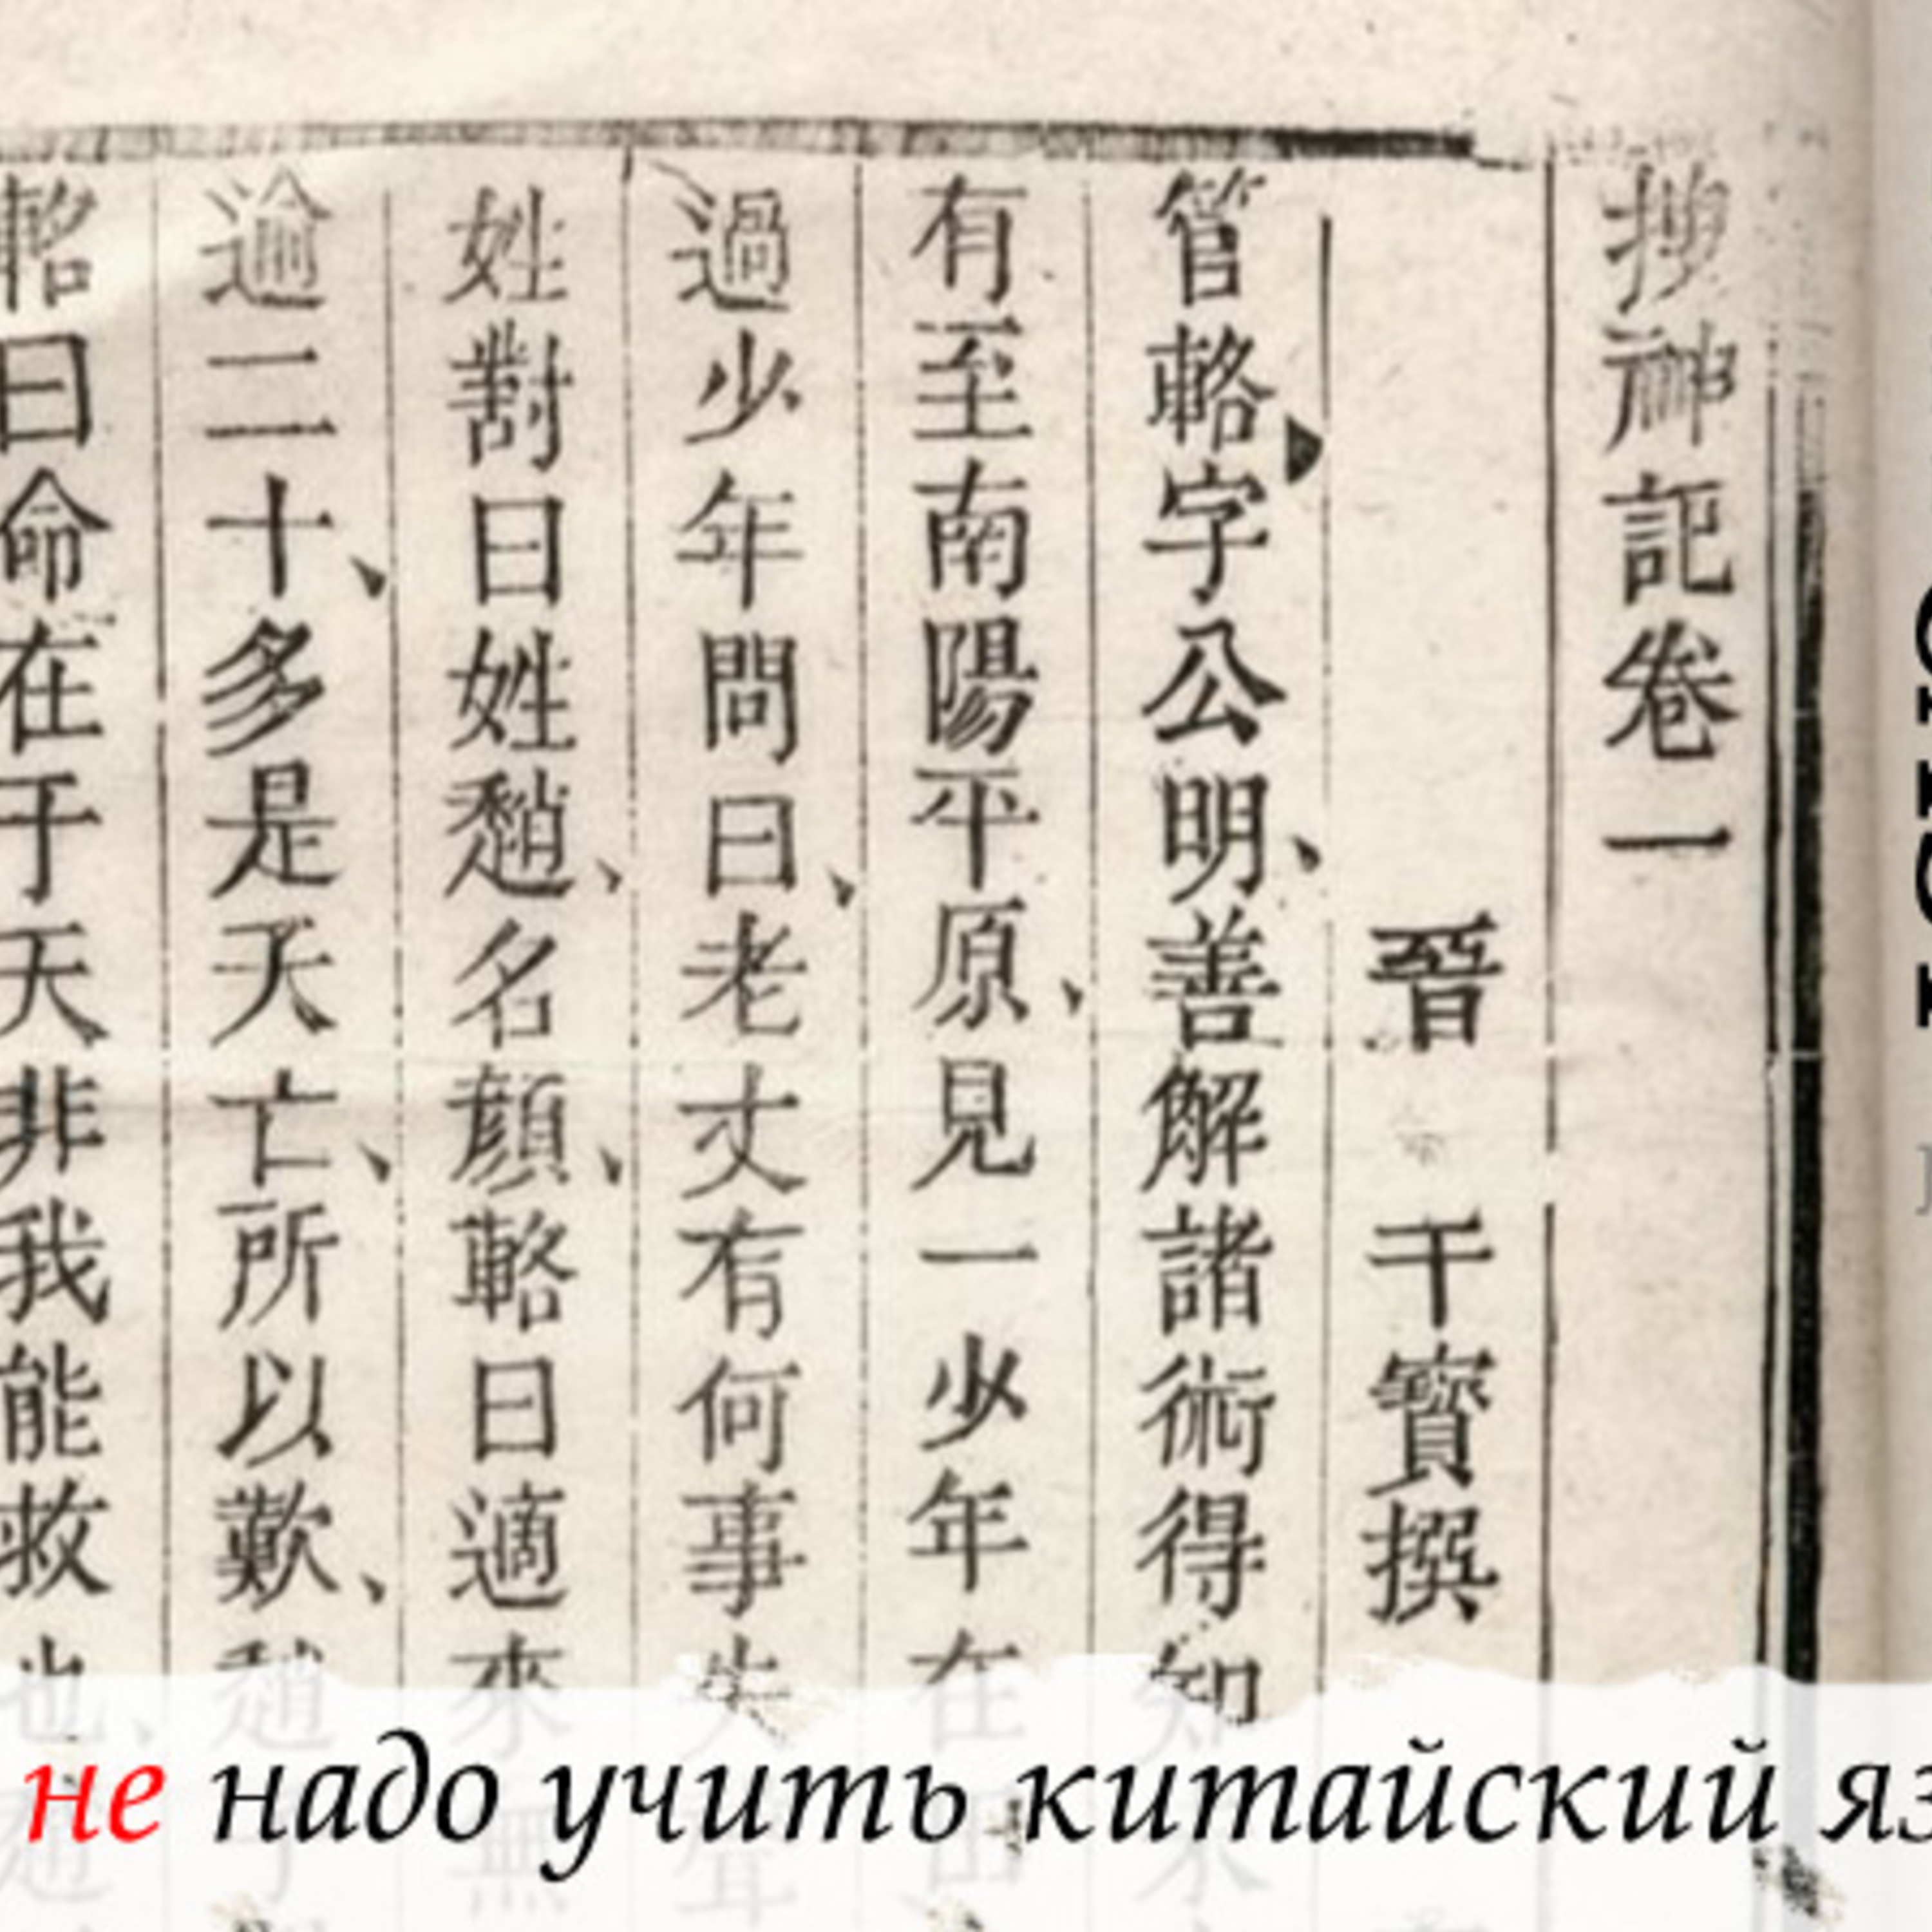 搜神記卷一
晉 干寶撰
管輅字公明、善解諸術得知
有至南陽平原、見一少年在田
過少年問曰、老丈有何事失聲
姓對曰姓趙、名顏、輅曰適來無
逾二十、多是夭亡、所以歎、趙
輅曰命在于天非我能救也、
не надо учить китайский яз